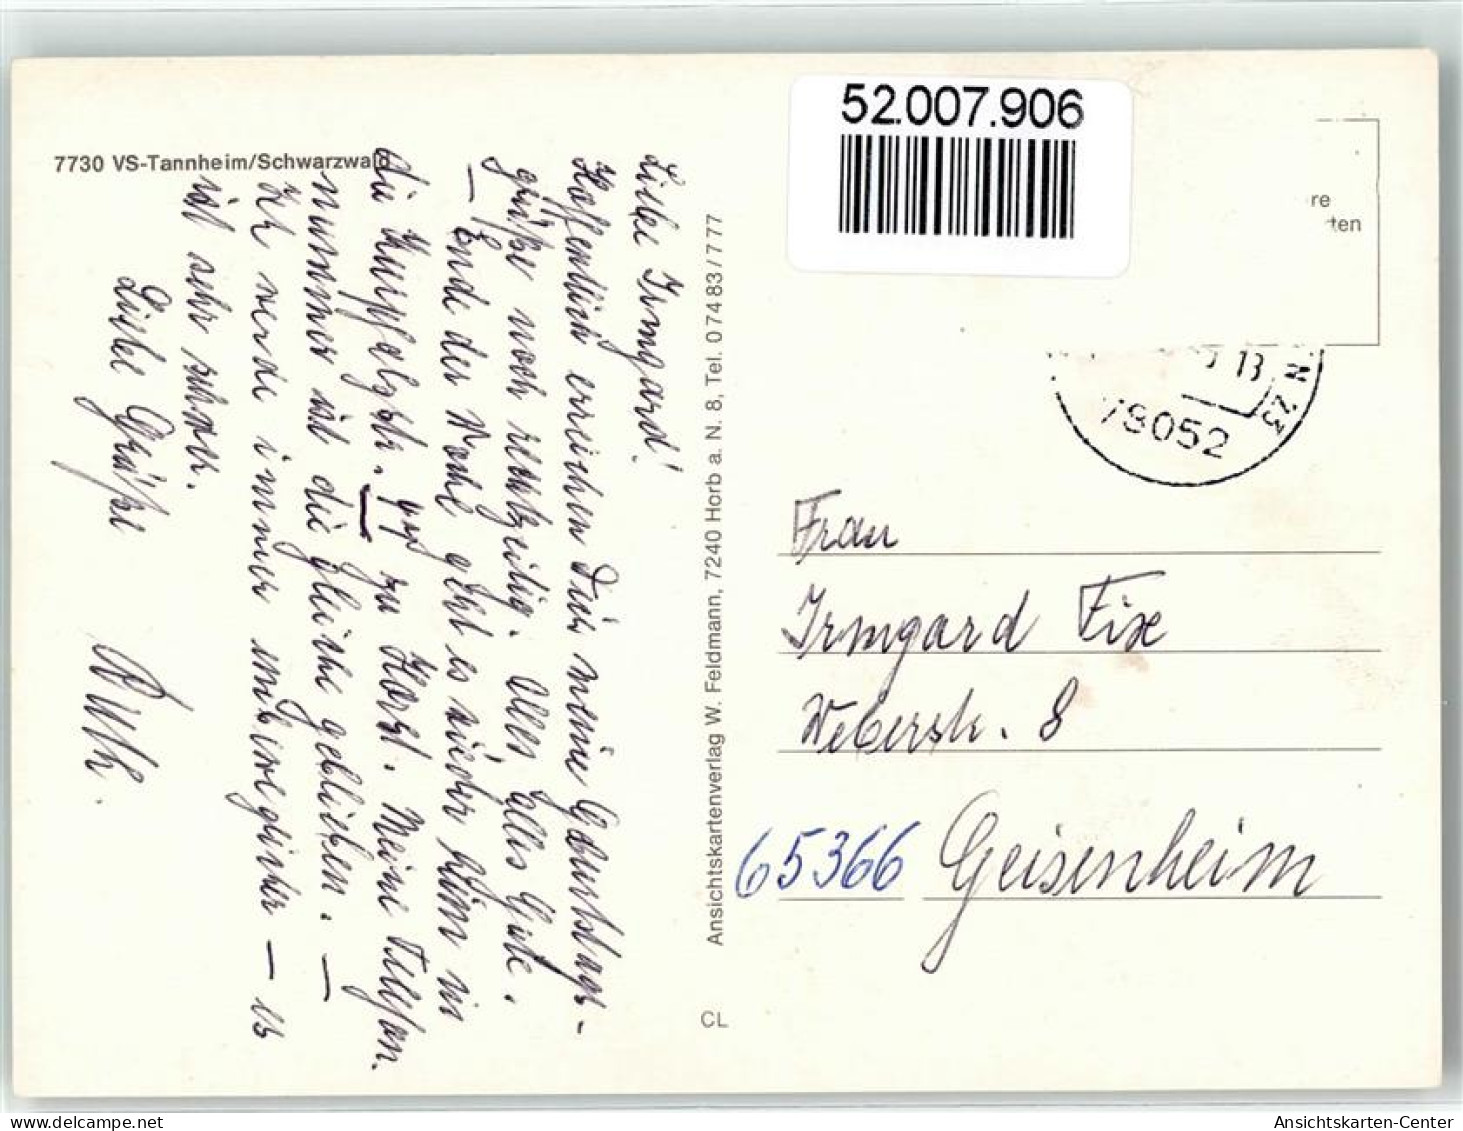 52.007.906
7730 VS-Tannheim/Schwarzwald
re
ten
13
78052
Liebe Irmgard!
Hoffentlich erreichen Dich meine Geburtstags-
grüße noch rechtzeitig. Alles, alles Gute.
— Ende der Woche geht es wieder heim in
die Kurpfalzstr. zu Horst. Meine Telefon
nummer ist die gleiche geblieben. —
Ich werde immer unbeweglicher — es
ist sehr schwer.
Liebe Grüße
Ruth.
Ansichtskartenverlag W. Feldmann, 7240 Horb a. N. 8, Tel. 0 74 83 / 7 77
CL
Frau
Irmgard Fix
Weberstr. 8
65366 Geisenheim
Ansichtskarten-Center